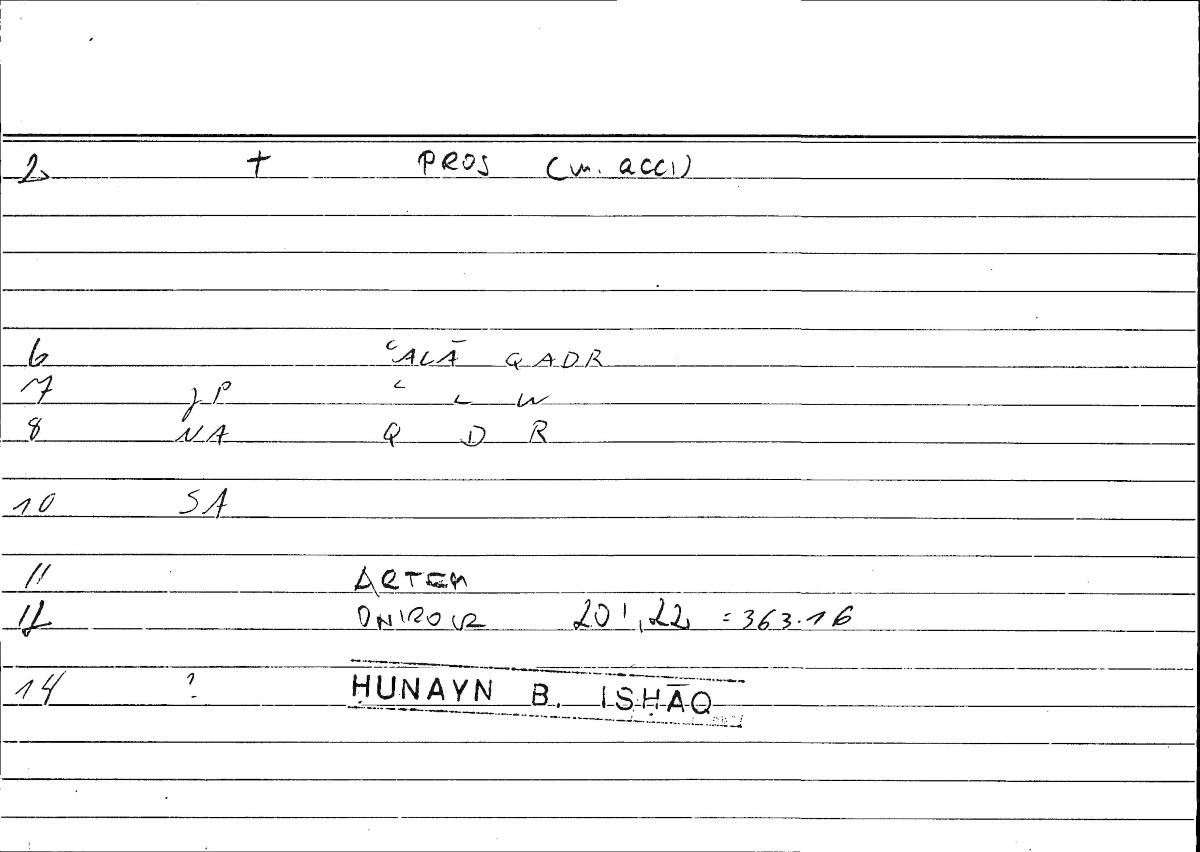 2 + PROS (m. acc.)
6 ʿALĀ QADR
7 JP ʿ L W
8 NA Q D R
10 SA
11 ARTEM
12 ONIROCR 201,22 = 363.16
14 ? ḤUNAYN B. ISḤĀQ